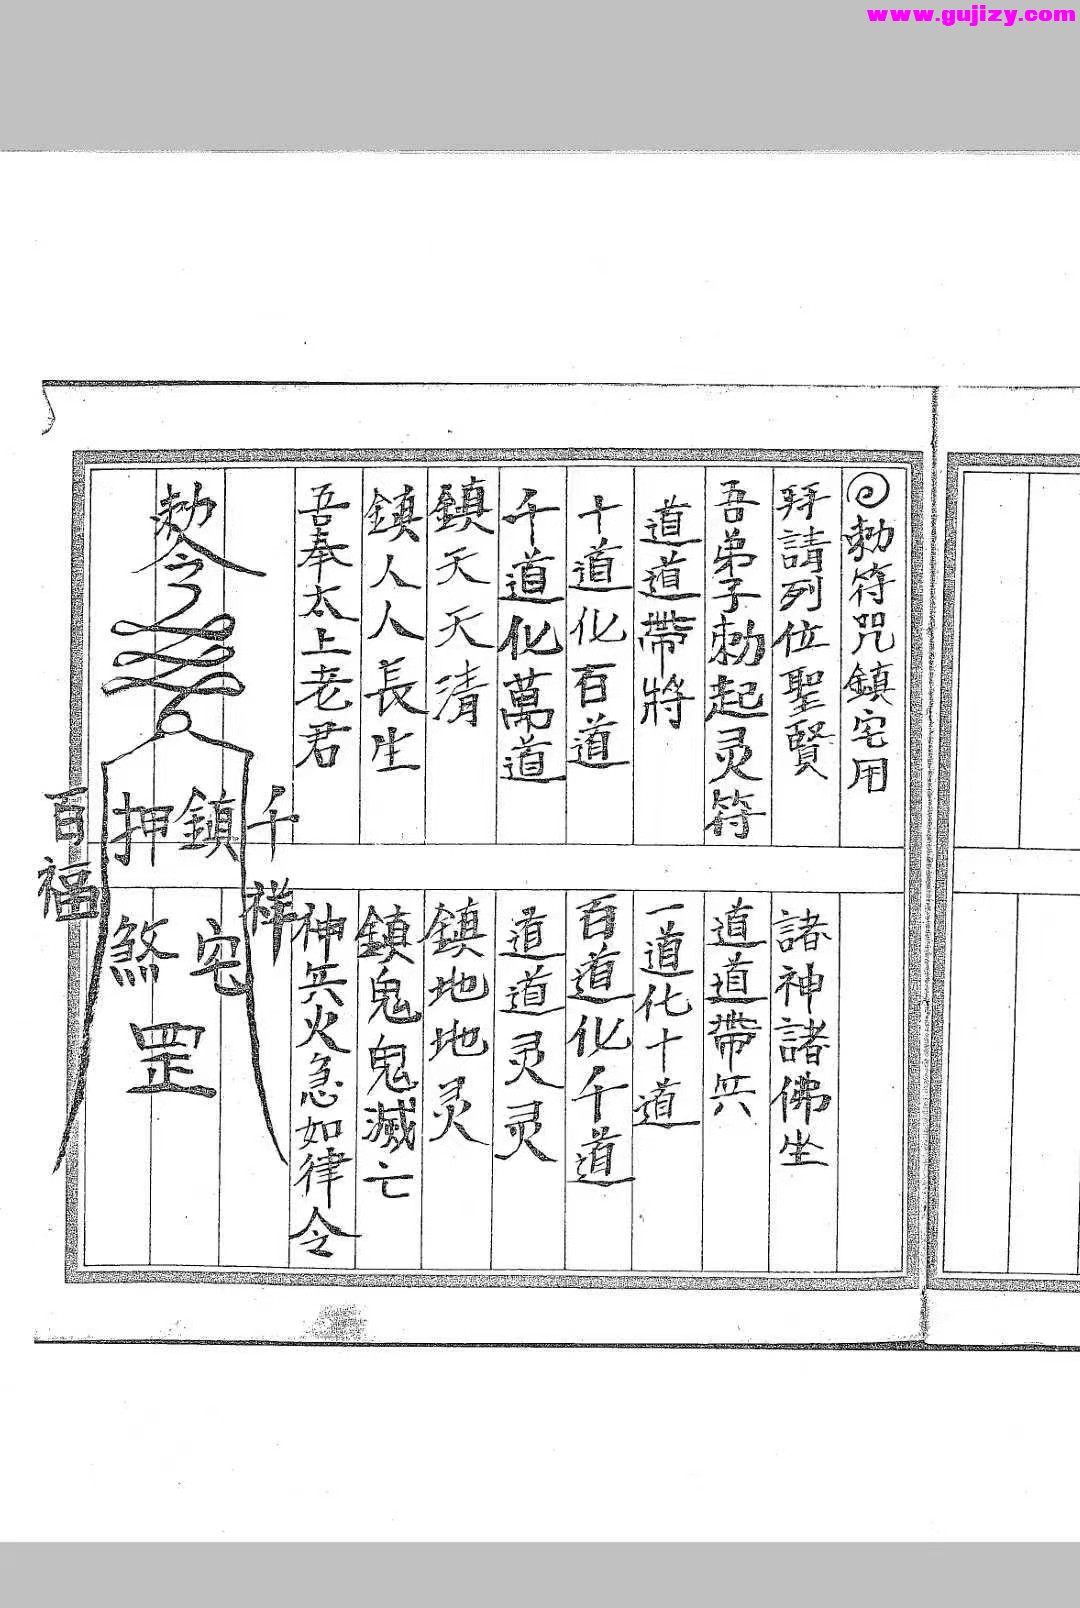 www.gujizy.com
勅符咒鎮宅用
拜請列位聖賢
諸神諸佛坐
吾弟子勅起灵符
道道帶兵
道道帶將
一道化十道
十道化百道
百道化千道
千道化萬道
道道灵灵
鎮天天清
鎮地地灵
鎮人人長生
鎮鬼鬼滅亡
吾奉太上老君
神兵火急如律令
勅令
千祥
鎮宅
押煞
罡
百福